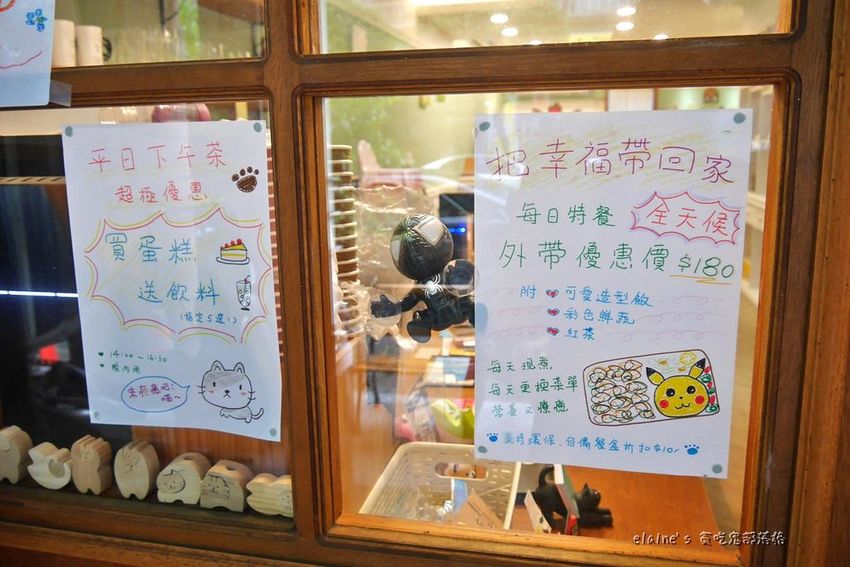 平日下午茶
超極優惠
買蛋糕
送飲料
(指定5選1)
14:00~16:30
限內用
來莊園吧!
喵~
把幸福帶回家
每日特餐
全天候
外帶優惠價$180
附 可愛造型飯
彩色鮮蔬
紅茶
每天現煮,
每天更換菜單
營養又療癒
支持環保,自備餐盒折扣$10/-
elaine's 貪吃鬼部落格